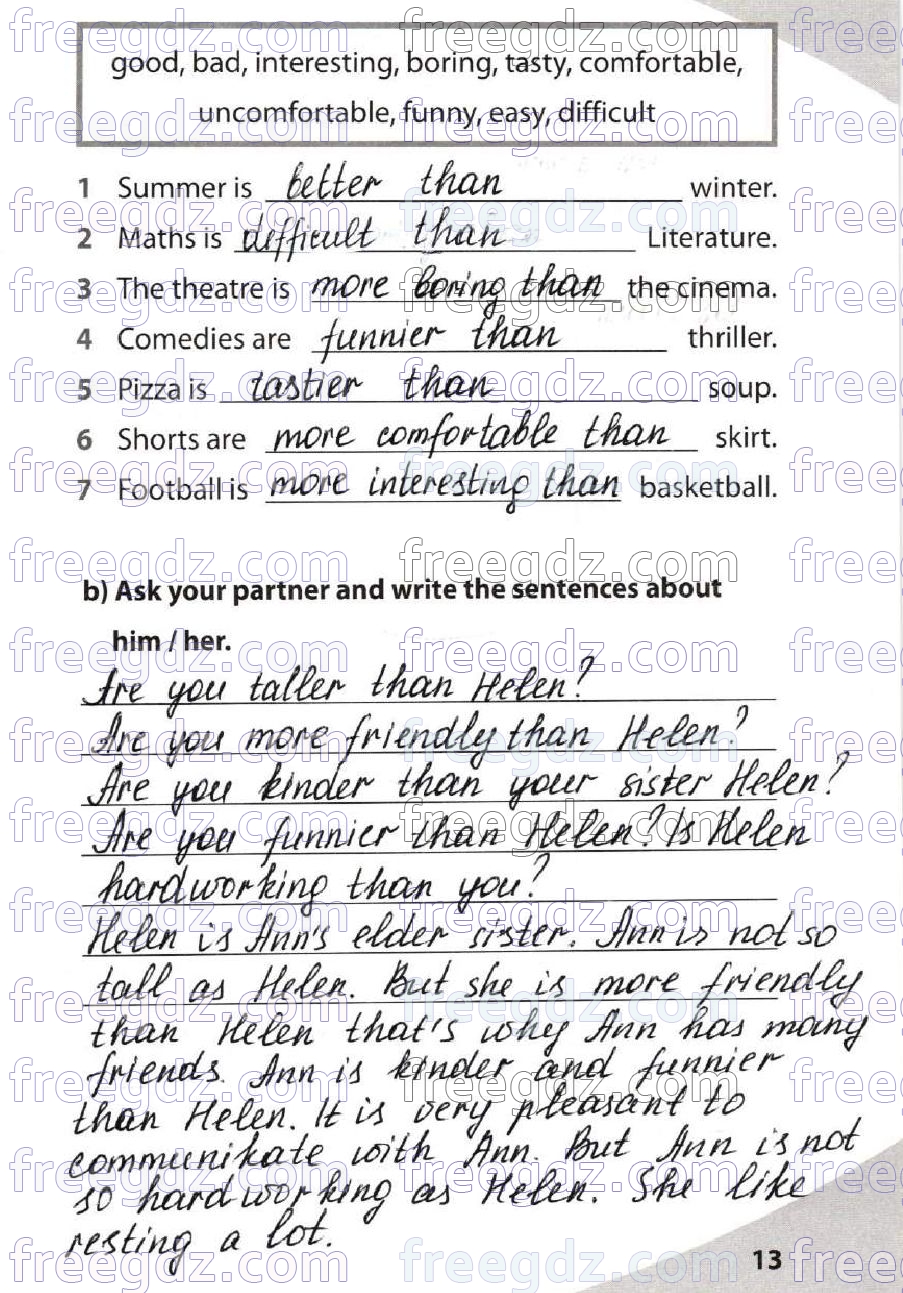 good, bad, interesting, boring, tasty, comfortable,
uncomfortable, funny, easy, difficult
1 Summer is better than winter.
2 Maths is difficult than Literature.
3 The theatre is more boring than the cinema.
4 Comedies are funnier than thriller.
5 Pizza is tastier than soup.
6 Shorts are more comfortable than skirt.
7 Football is more interesting than basketball.
b) Ask your partner and write the sentences about
him / her.
Are you taller than Helen?
Are you more friendly than Helen?
Are you kinder than your sister Helen?
Are you funnier than Helen? Is Helen
hardworking than you?
Helen is Ann's elder sister. Ann is not so
tall as Helen. But she is more friendly
than Helen that's why Ann has many
friends. Ann is kinder and funnier
than Helen. It is very pleasant to
communikate with Ann. But Ann is not
so hardworking as Helen. She like
resting a lot.
13
freegdz.com